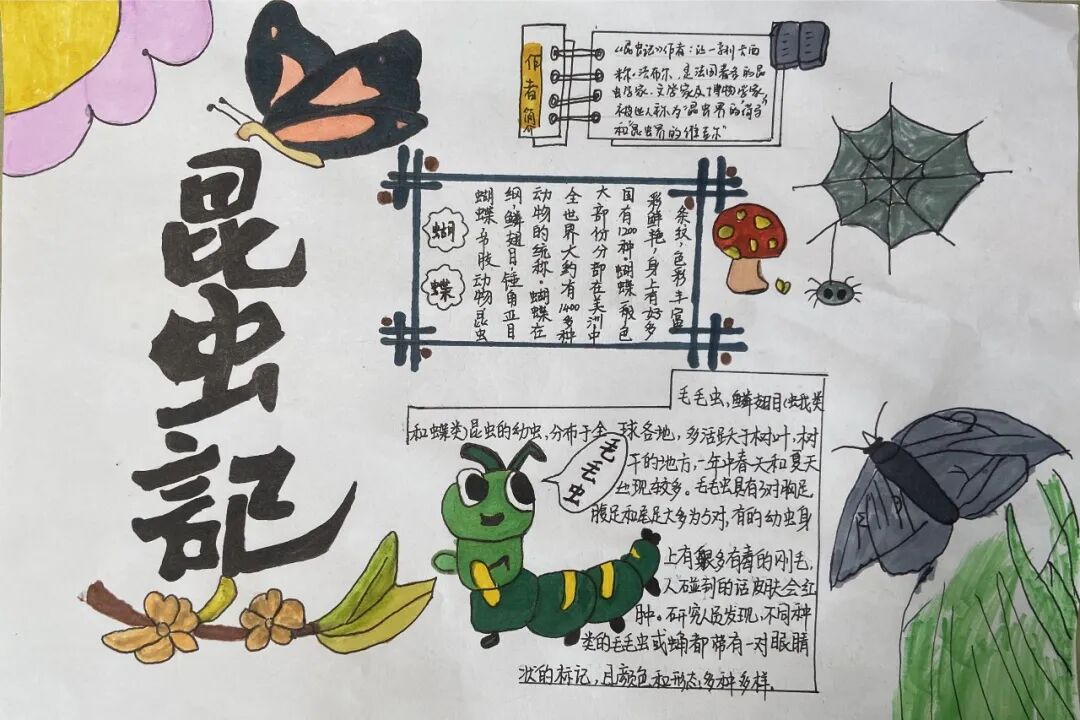 昆虫記
作者简介
《昆虫记》作者:让一亨利·卡西
称.法布尔,是法国著名的昆
虫学家.文学家及博物学家,
被世人称为"昆虫界的荷马"
和"昆虫界的维吉尔"
蝴蝶
蝴蝶,节肢动物昆虫
纲,鳞翅目,锤角亚目
动物的统称。蝴蝶在
全世界大约有1400多种
大部份分部在美洲中
国有1200种。蝴蝶一般色
彩鲜艳,身上有好多
条纹,色彩丰富
毛毛虫,鳞翅目(蛾类
和蝶类)昆虫的幼虫,分布于全球各地,多活跃于树叶,树
干的地方,一年中春天和夏天
出现较多。毛毛虫具有3对胸足
腹足和尾足大多为5对,有的幼虫身
上有很多有毒的刚毛,
人碰到的话皮肤会红
肿。研究人员发现,不同种
类的毛毛虫或蛹都带有一对眼睛
状的标记,且颜色和形态多种多样.
毛毛虫